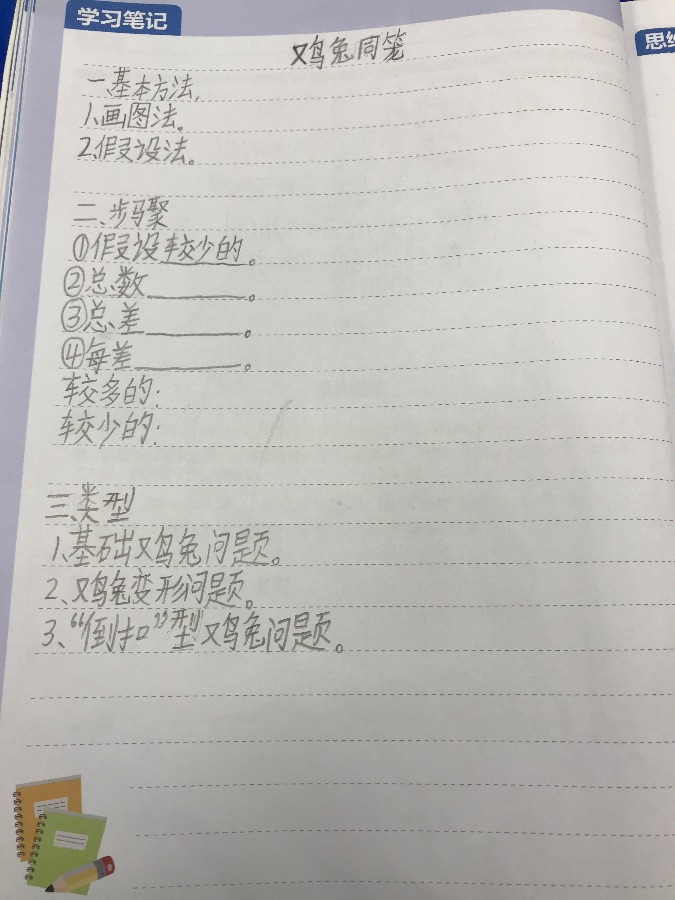 学习笔记
思维
鸡兔同笼
一、基本方法.
1、画图法。
2、假设法。
二、步骤
①假设较少的。
②总数______。
③总差______。
④每差______。
较多的:
较少的:
三、类型
1、基础鸡兔问题。
2、鸡兔变形问题。
3、“倒扣”型鸡兔问题。